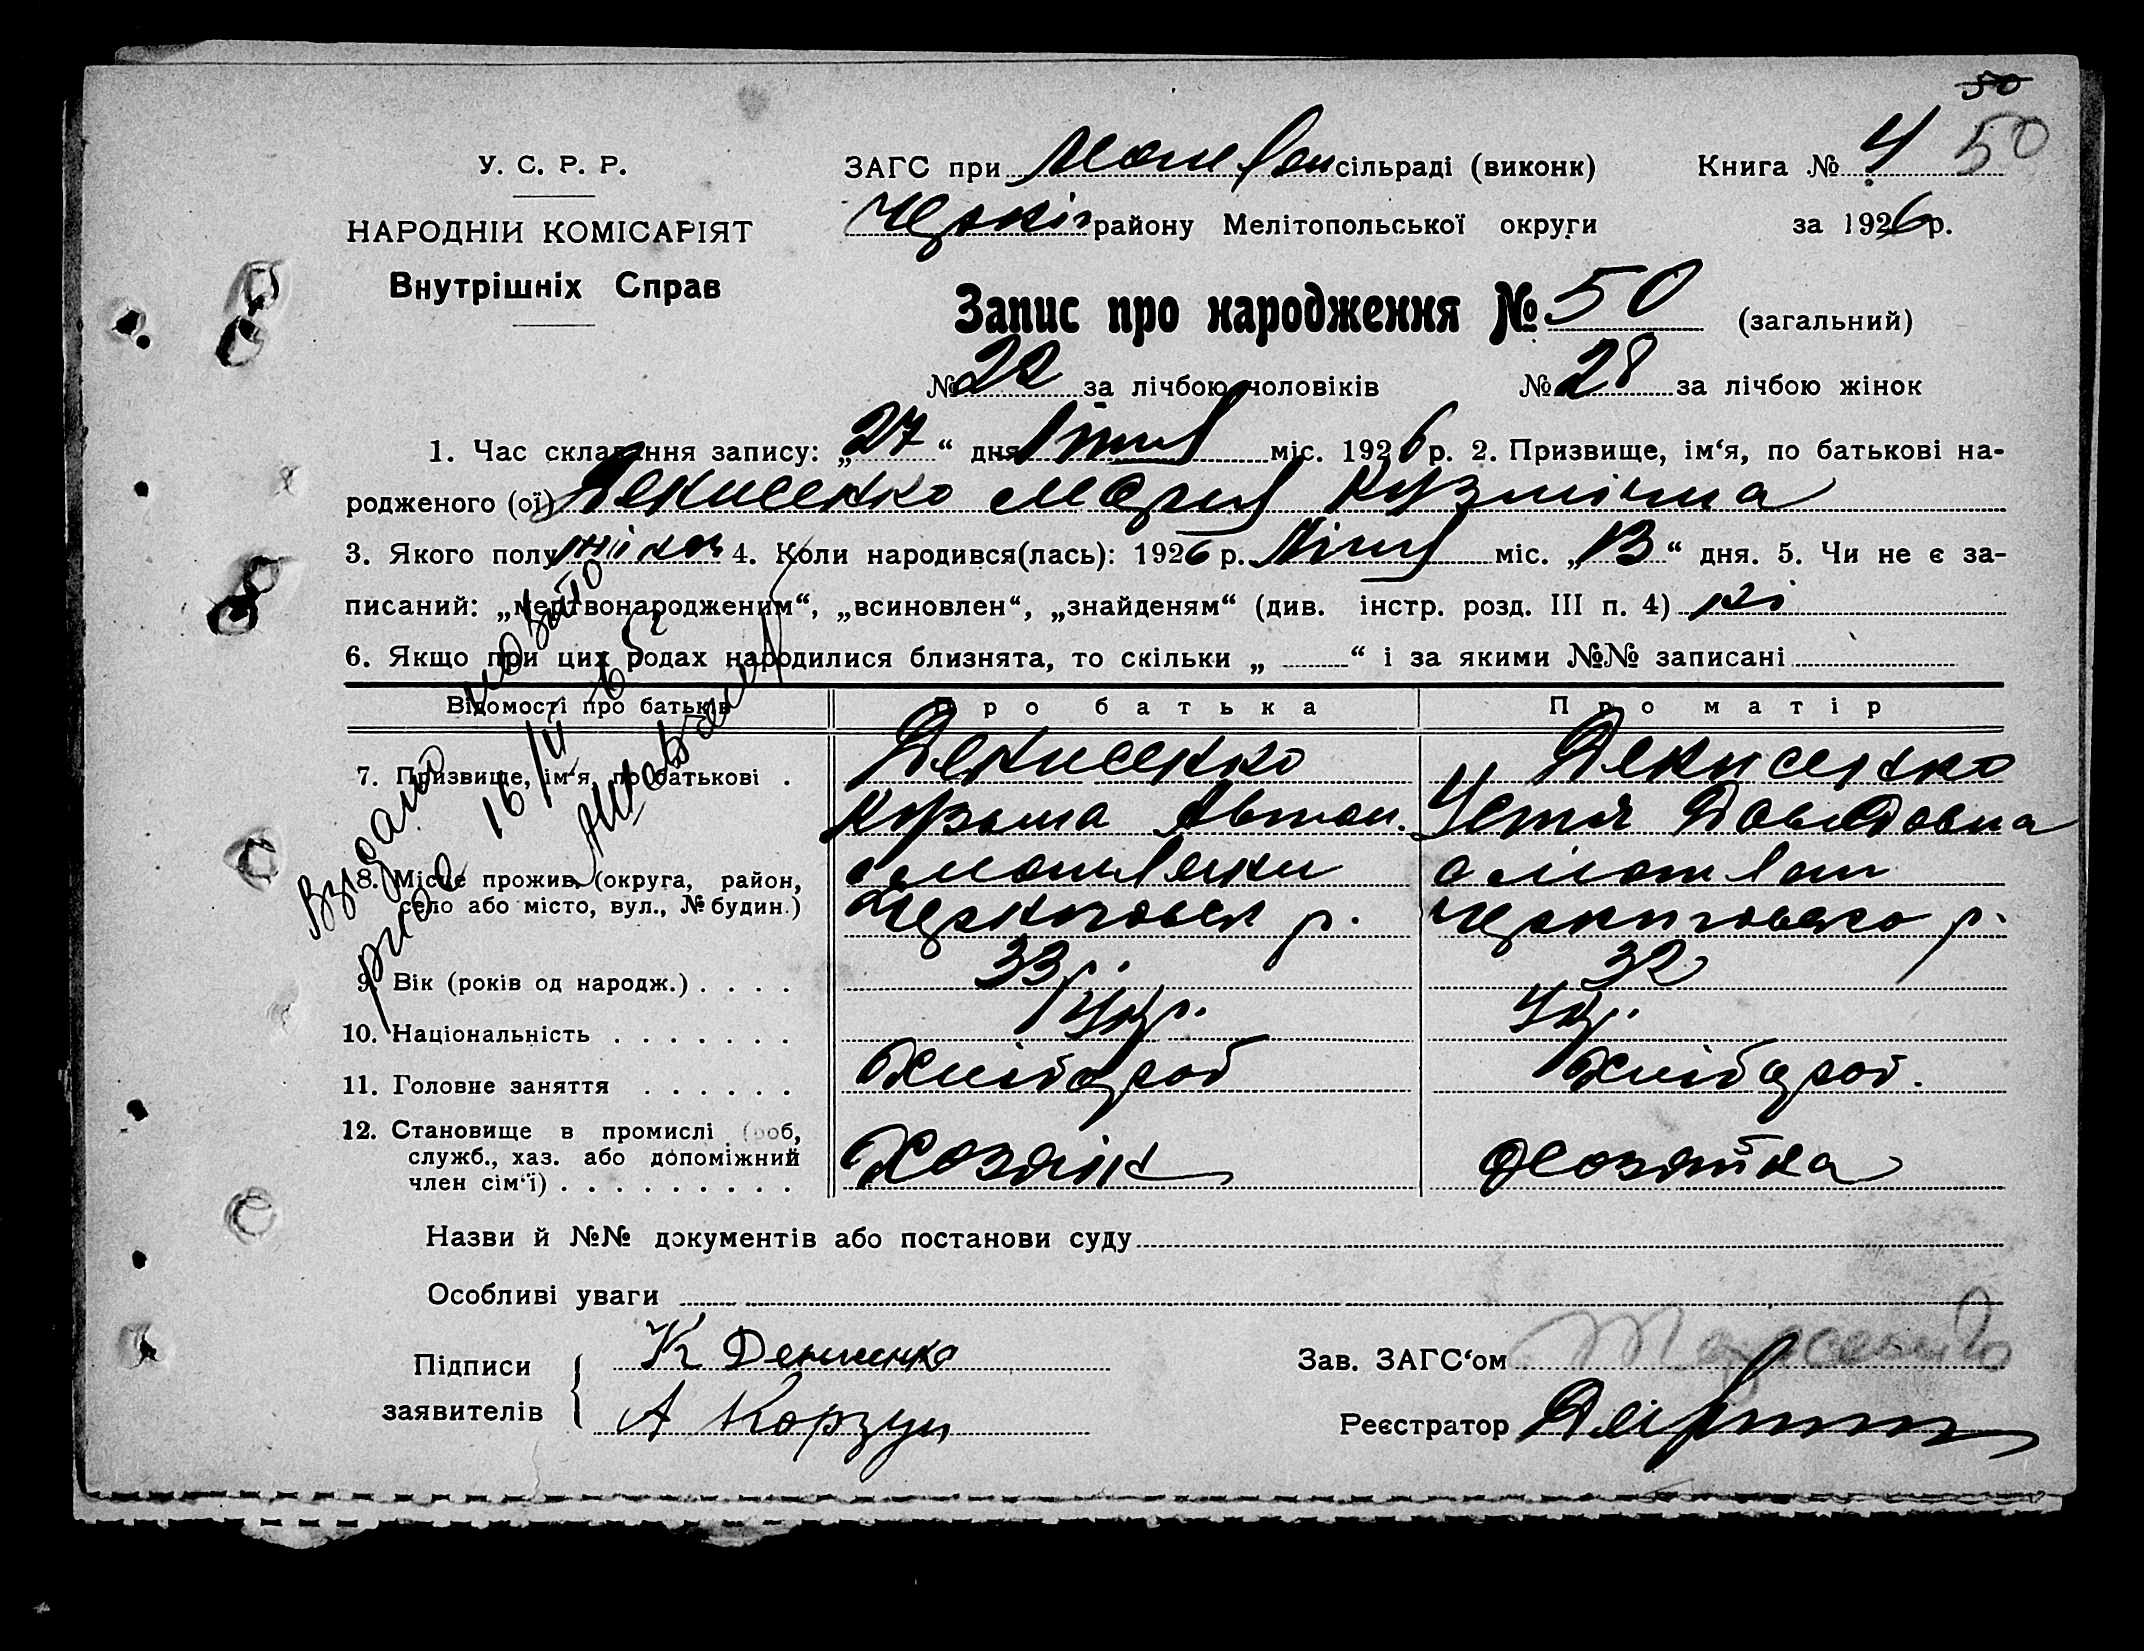 50
У. С. Р. Р.
НАРОДНІЙ КОМІСАРІЯТ
Внутрішніх Справ
ЗАГС при сільраді (виконк) Книга № 4 50
району Мелітопольської округи за 1926 р.
Запис про народження № 50 (загальний)
№ 22 за лічбою чоловіків № 28 за лічбою жінок
1. Час складання запису: „27“ дня міс. 1926 р. 2. Призвище, ім‘я, по батькові на-
родженого (ої) Денисенко Марія Кузмінична
3. Якого полу жіноч 4. Коли народився(лась): 1926 р. міс. „13“ дня. 5. Чи не є за-
писаний: „мертвонародженим“, „всиновлен“, „знайденям“ (див. інстр. розд. III п. 4) ні
6. Якщо при цих родах народилися близнята, то скільки „ “ і за якими №№ записані
Відомості про батьків Про батька Про матір
7. Призвище, ім‘я, по батькові . Денисенко Денисенко
Кузьма Устя Давидовна
8. Місце прожив. (округа, район,
село або місто, вул., № будин.) р. р.
9. Вік (років од народж.) . . . . 33 р. 32
10. Національність . . . . . . . Укр. Укр.
11. Головне заняття . . . . . . Хлібороб Хлібороб.
12. Становище в промислі (роб,
служб., хаз. або допоміжний
член сім‘ї) . . . . . . . . . Хозяін Хозяйка
Видано повторно
16/II 65
Назви й №№ документів або постанови суду
Особливі уваги
Підписи К Денисенко Зав. ЗАГС‘ом
заявителів А Корзун Реєстратор